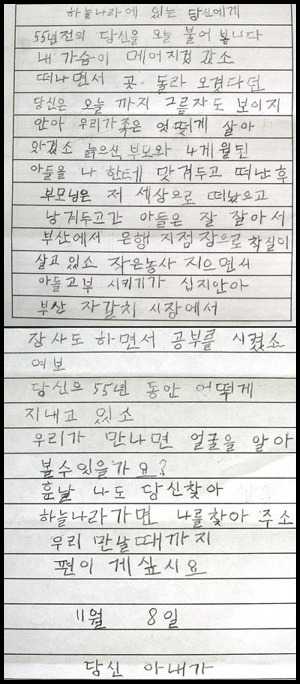 하늘나라에 있는 당신에게
55년전의 당신을 오늘 불어 봅니다
내 가슴이 메어지것 갔소
떠나면서 곳 돌라 오겠다던
당신은 오늘 까지 그름자도 보이지
안아 우리가족은 엇떻게 살아
왔겠소 늙으신 부모와 4개월된
아들을 나 한테 맛겨두고 떠난후
부모님은 저 세상으로 떠났으고
남겨두고간 아들은 잘 잘아서
부산에서 은행 지점장으로 착실이
살고 있소 작은농사 지으면서
아들고부 시키기가 십지안아
부산 자갈치 시장에서
장사도 하면서 공부를 시켰소
여보
당신으 55년 동안 어떻게
지내고 있소
우리가 만나면 얼굴을 알아
볼수있을가요?
훗날 나도 당신찾아
하늘나라가면 나를찾아 주소
우리 만날때까지
편이 게싶시요
11월 8일
당신 아내가